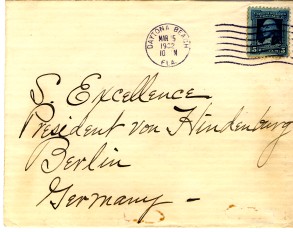 DAYTONA BEACH
MAR 5
1932
10 M
FLA.
S. Excellence
President von Hindenburg
Berlin
Germany –